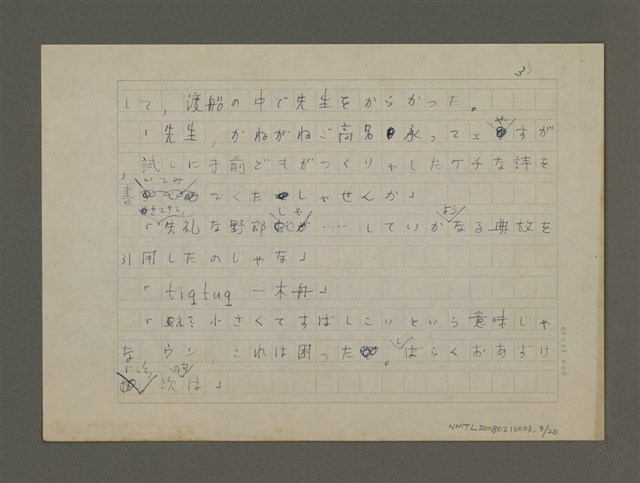 3)
して，渡船の中で先生をからかった。
「先生，かねがねご高名承ってェやすが
，試しに手前どもがつくりゃしたケチな詩を
書いてみてくだしゃせんか」
「失礼な野郎じゃ……していかような典故を
引用したのじゃな」
「tiqtuq 一木舟」
「 小さくてすばしこいという意味じゃ
な ウン，これは困った。しばらくおあずけ
にして，次は」
NMTL20080210003, 3/20